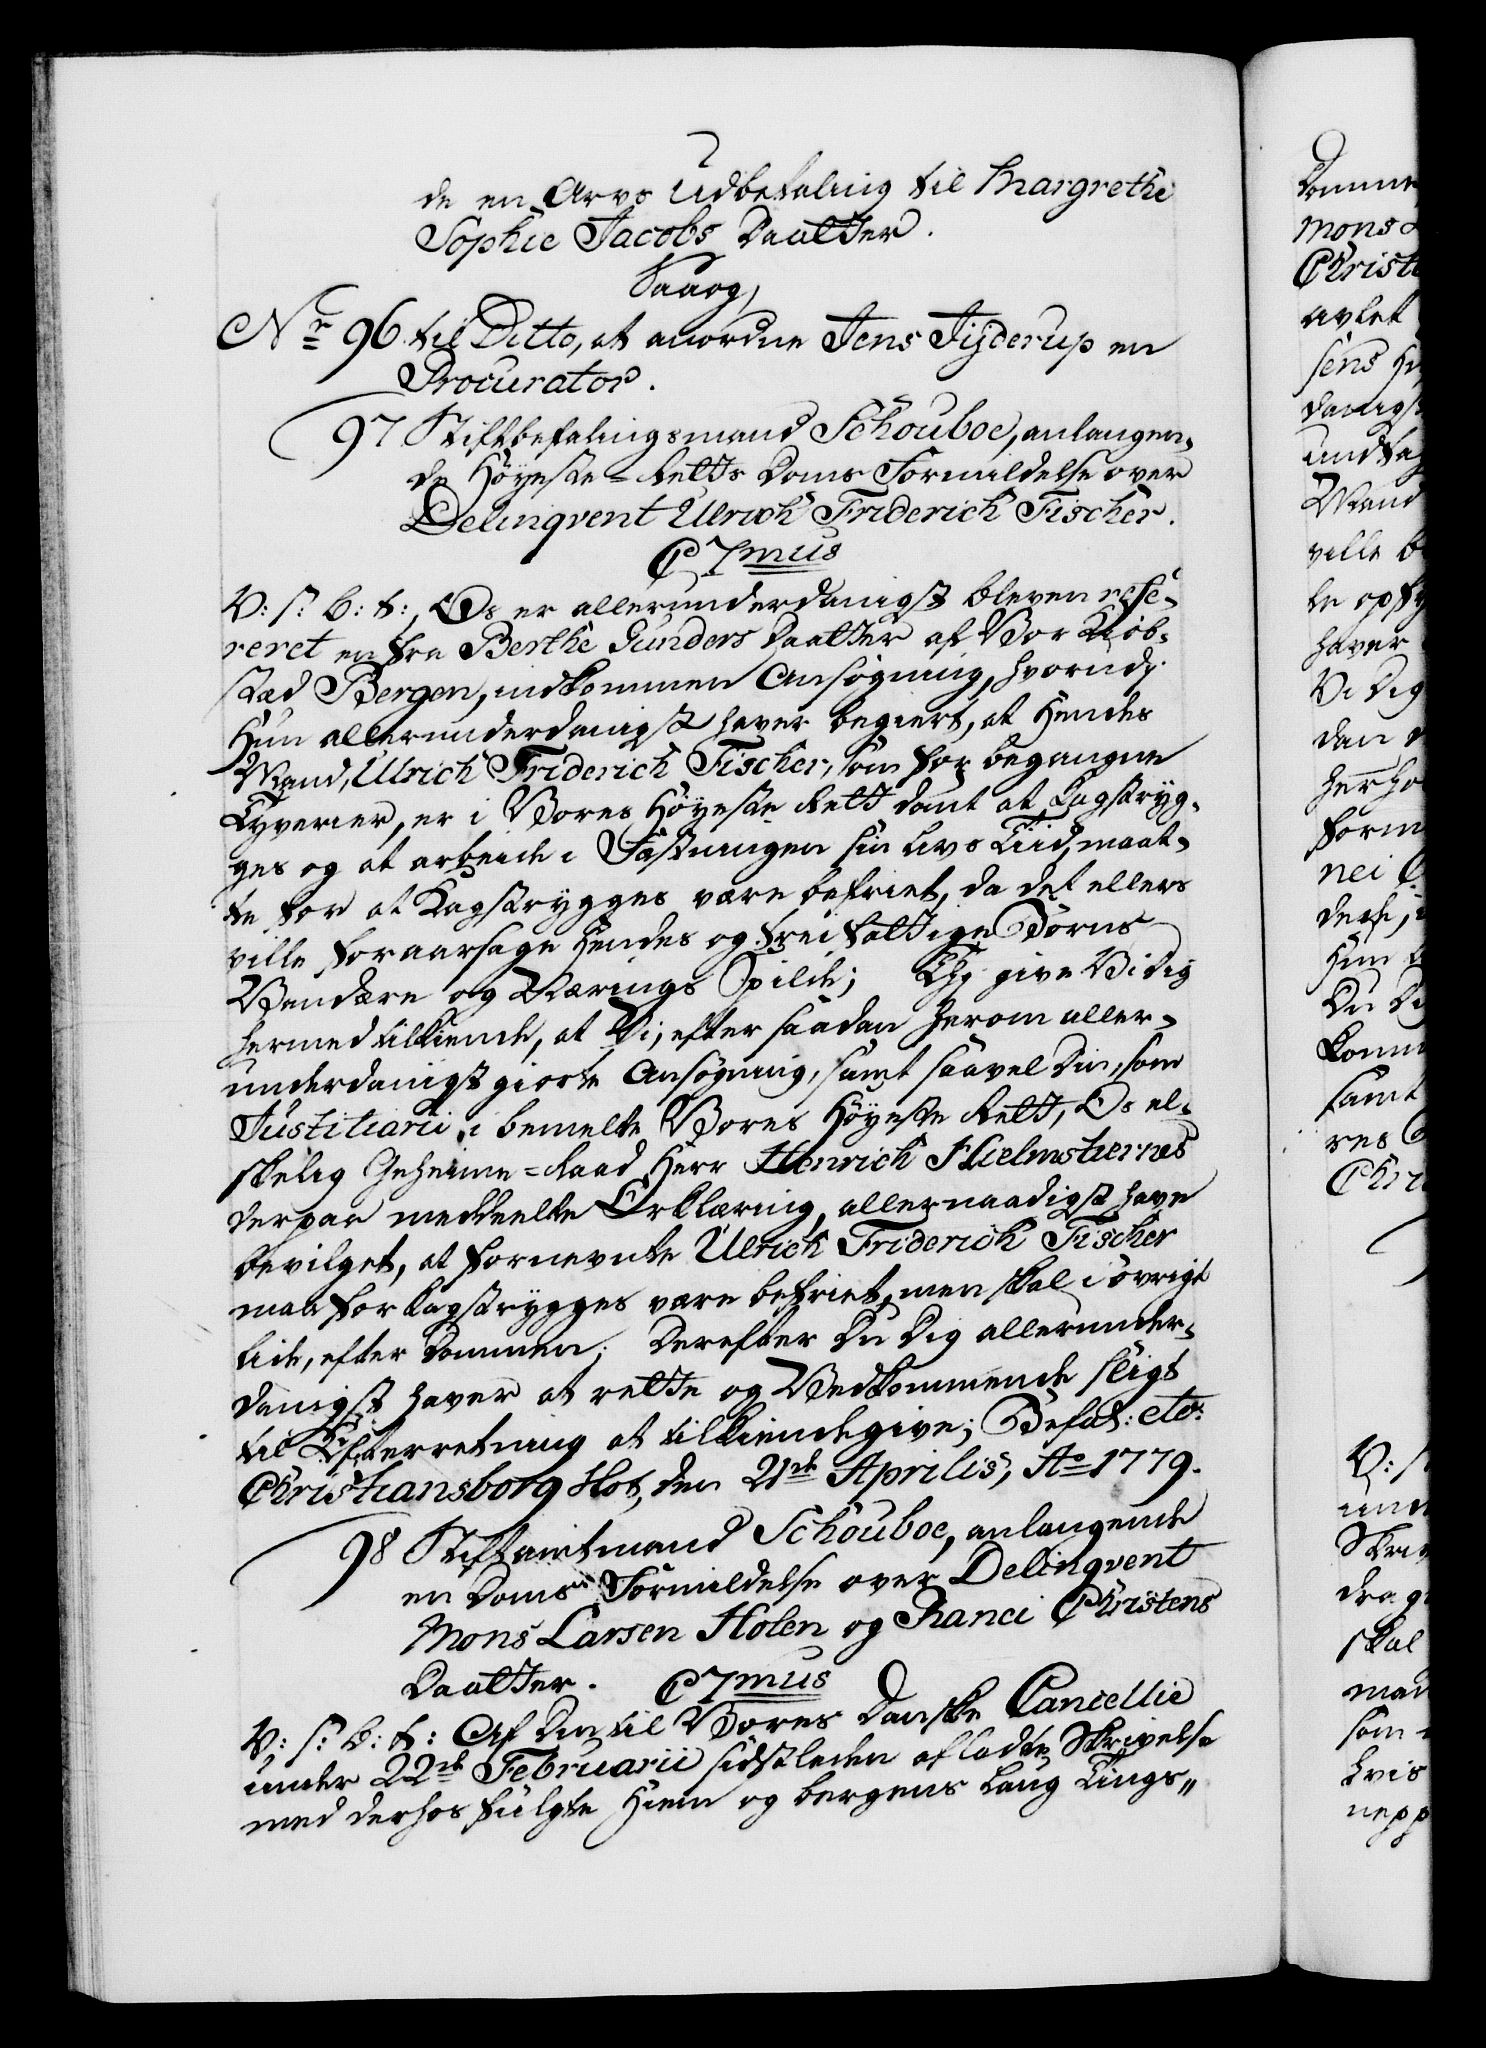 de en Arvs Udbetaling til Margrethe
Sophie Jacobs Daatter.
Vaag
Nr 96 til Ditto, at anordne Jens Tyderup en
Procurator.
97 Stiftbefalingsmand Schouboe, anlangen-
de Höyeste-Retts Doms Formildelse over
Delinqvent Ulrich Friderich Fischer.
C7mus
V: s: G: t: Os er allerunderdanigst bleven refe-
reret en fra Berthe Gunders Daatter af Vor Kiöb-
stæd Bergen, indkommen Ansögning, hvorudj
Hun allerunderdanigst haver begiert, at Hendes
Mand, Ulrich Friderich Fischer, som for begangne
Tyverier, er i Vores Höyeste Rett dömt at Kagstryg-
ges og at arbeide i Fæstningen sin Livs Tiid, maat-
te for at Kagstrygges være befriet, da det ellers
ville foraarsage Hendes og trei fattige Börns
Vanære og Nærings Spilde; Thj give Vi dig
hermed tilkiende, at Vi, efter saadan herom aller-
underdanigst giorte Ansögning, samt saavel Din, som
Justitiarii i bemelte Vores Höyeste Rett, Os el-
skelig Geheime-Raad Herr Henrich Hielmstiernes
derpaa meddeelte Erklæring, allernaadigst have
bevilget, at fornevnte Ulrich Friderich Fischer
maa for Kagstrygges være befriet, men skal i övrigt
lide, efter Dommen; Derefter Du Dig allerunder-
danigst haver at rette og Vedkommende sligt
til Efterretning at tilkiendegive; Befal: etc:
Christiansborg Slot, den 21de Aprilis, Ao 1779.
98 Stiftamtmand Schouboe, anlangende
en Doms Formildelse over Delinqvent
Mons Larsen Holen og Ranci Christens
Daatter. C7mus
V: s: G: t: Af Din til Vores Danske Cancellie
under 22de Februarii sidstleden afladte Skrivelse
med derhos fulgte Hiem og bergens Laug Tings"